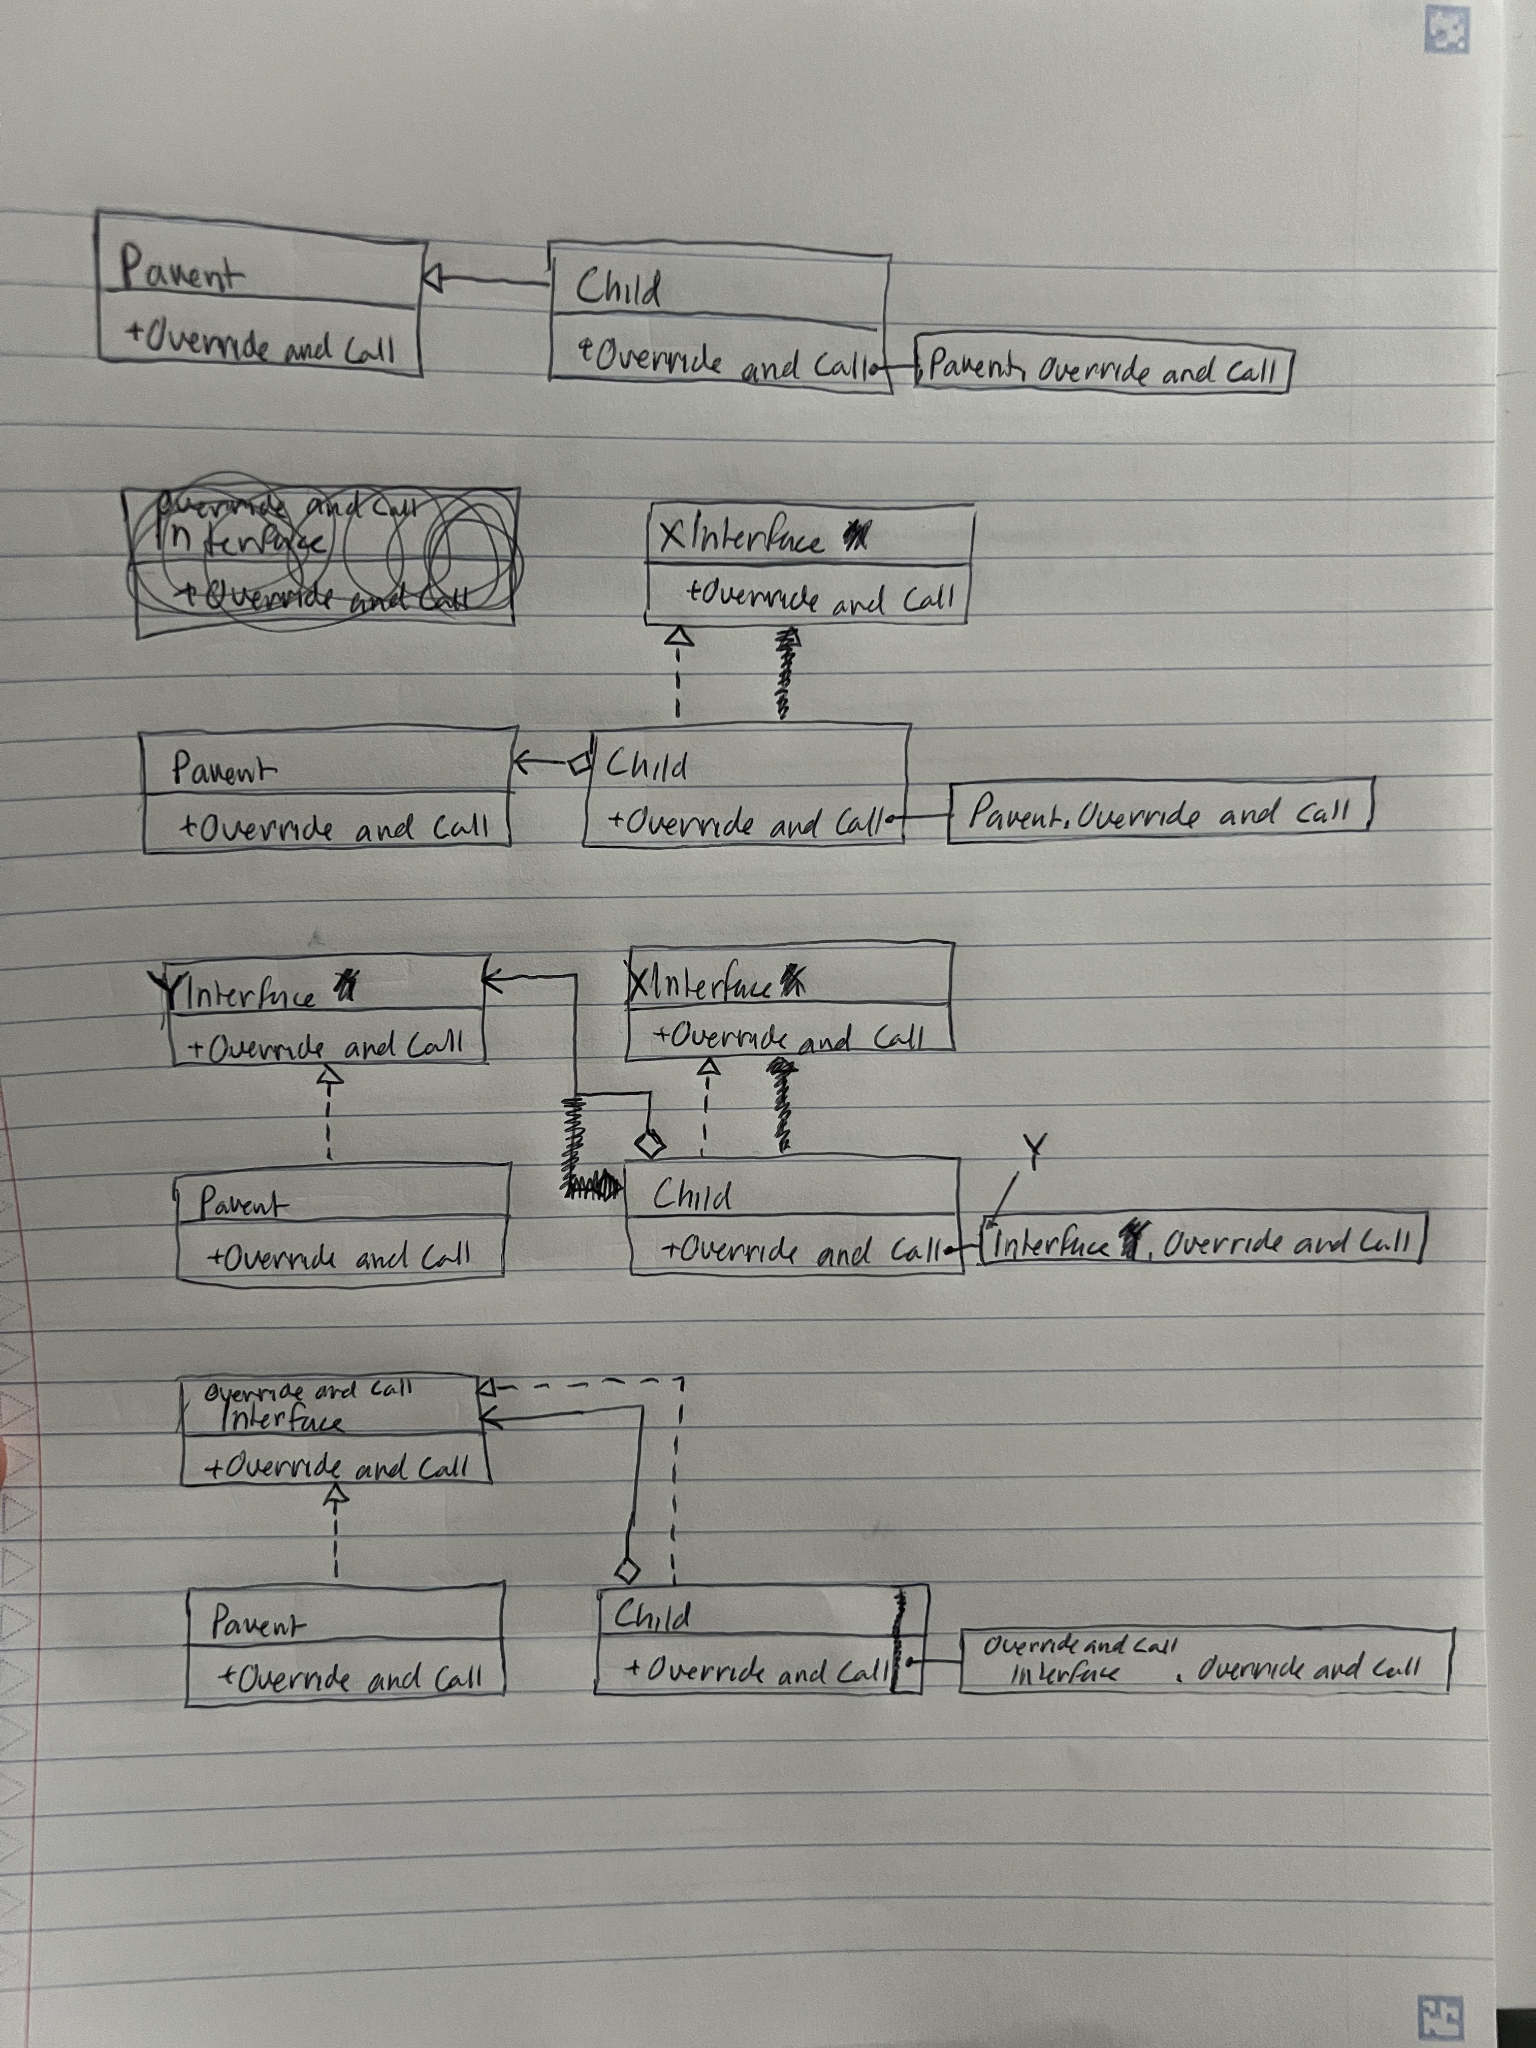 Parent
+Override and Call
Child
+Override and Call
Parent. Override and Call
Override and Call
Interface
+Override and Call
XInterface
+Override and Call
Parent
+Override and Call
Child
+Override and Call
Parent. Override and Call
YInterface
+Override and Call
XInterface
+Override and Call
Y
Parent
+Override and Call
Child
+Override and Call
Interface . Override and Call
Override and Call
Interface
+Override and Call
Parent
+Override and Call
Child
+Override and Call
Override and Call
Interface . Override and Call